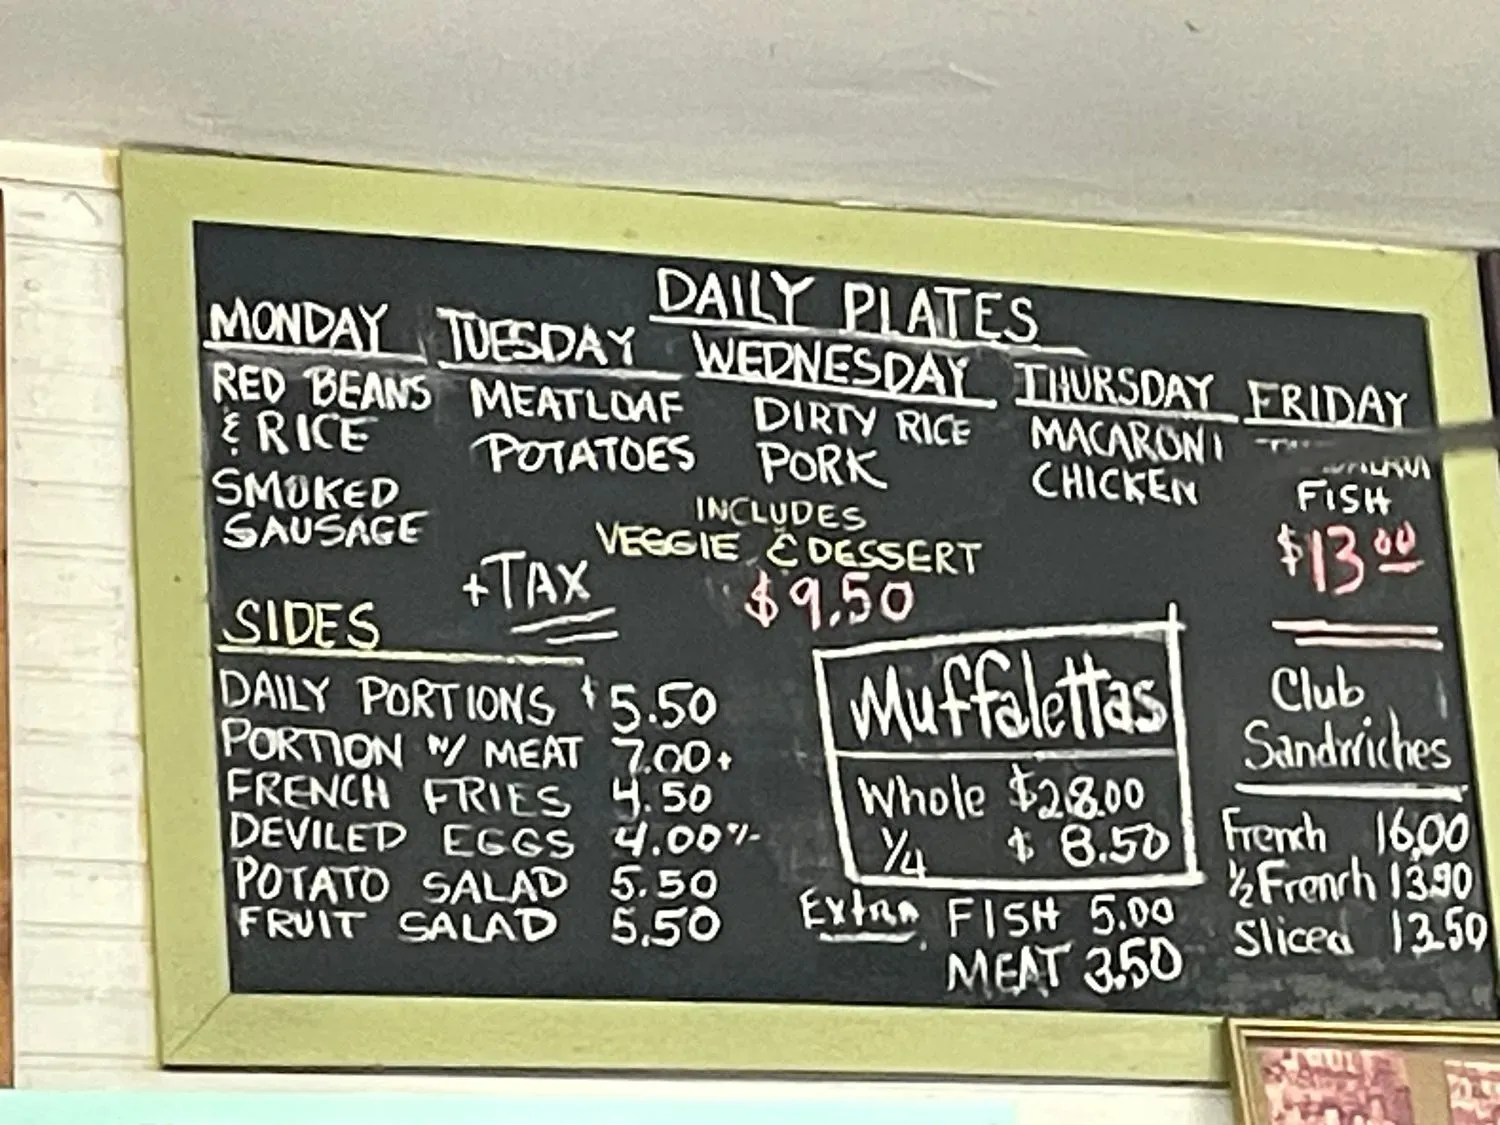 DAILY PLATES
MONDAY
RED BEANS
& RICE
SMOKED
SAUSAGE
TUESDAY
MEATLOAF
POTATOES
WEDNESDAY
DIRTY RICE
PORK
THURSDAY
MACARONI
CHICKEN
FRIDAY
FISH
$13.00
INCLUDES
VEGGIE & DESSERT
$9.50
+TAX
SIDES
DAILY PORTIONS $5.50
PORTION W/ MEAT 7.00+
FRENCH FRIES 4.50
DEVILED EGGS 4.00
POTATO SALAD 5.50
FRUIT SALAD 5.50
Muffalettas
Whole $28.00
1/4 $8.50
Extra FISH 5.00
MEAT 3.50
Club
Sandwiches
French 16.00
1/2 French
Sliced